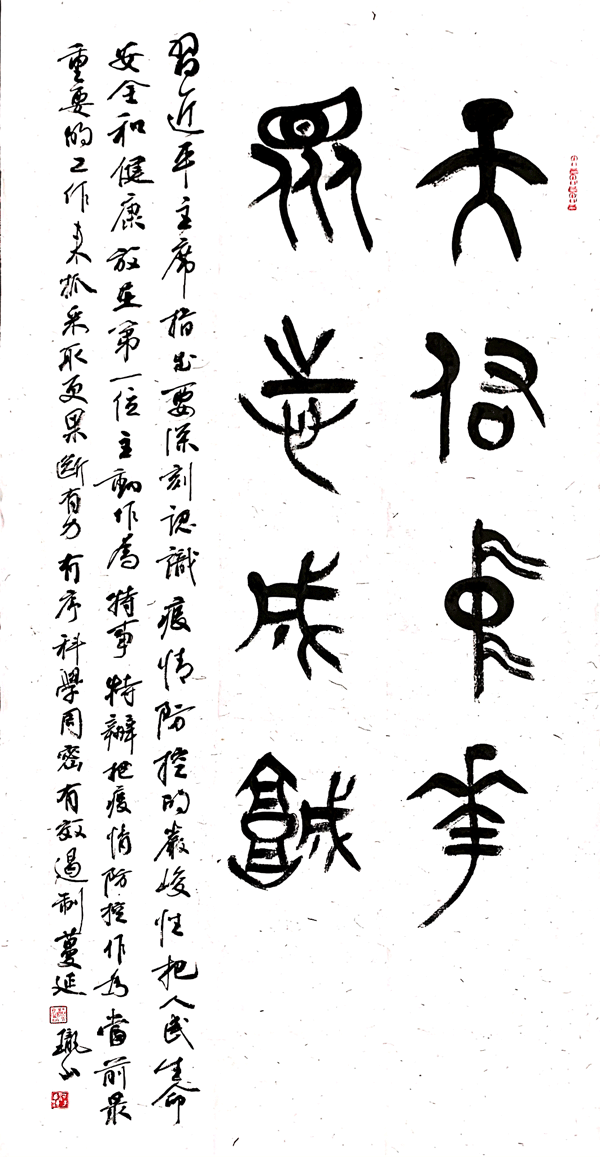 天佑中華
眾志成城
習近平主席指出要深刻認識疫情防控的嚴峻性把人民生命
安全和健康放在第一位主動作為特事特辦把疫情防控作为當前最
重要的工作来抓采取更果断有力有序科學周密有效遏制蔓延